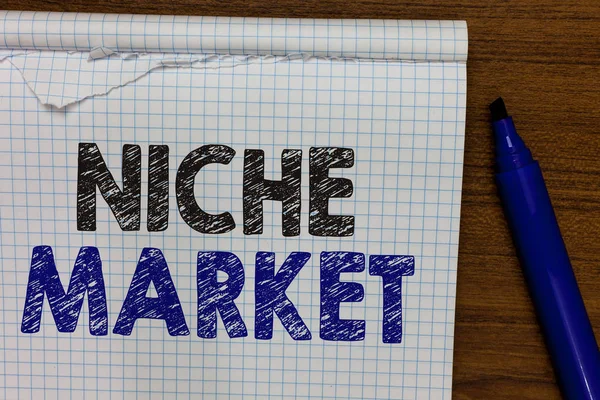 NICHE
MARKET